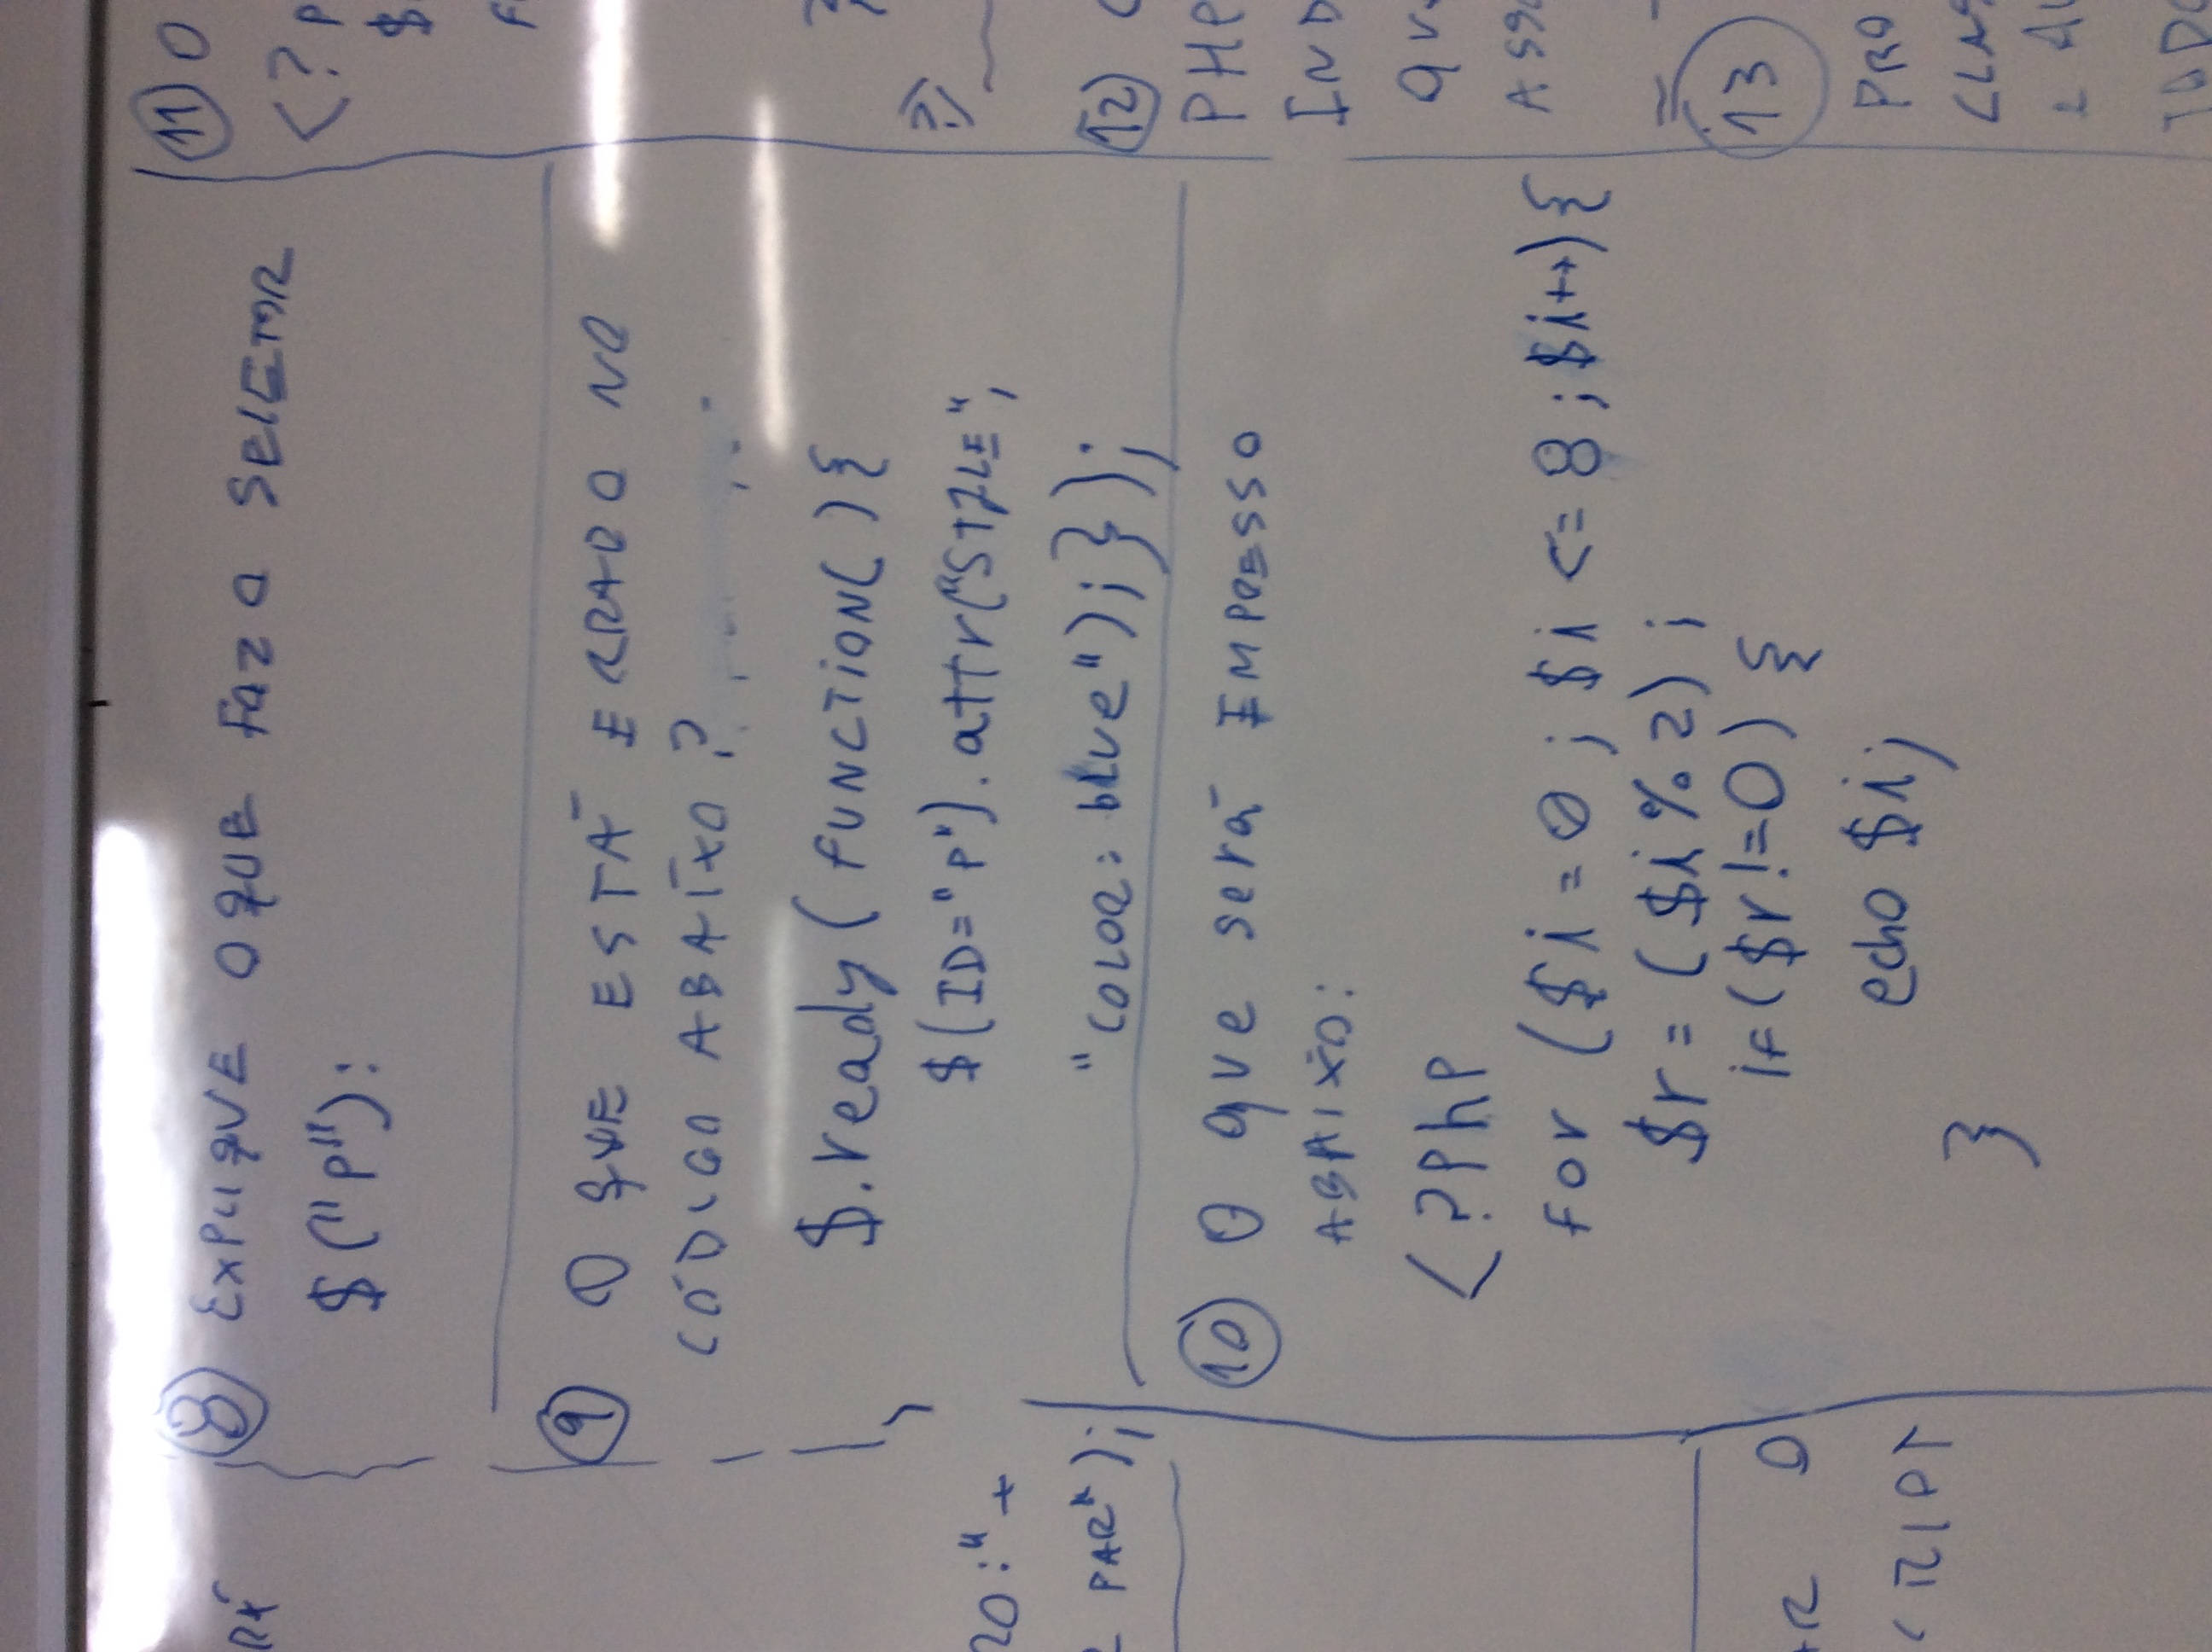 RÁ
20:"+
PAR");
AR O
CRIPT
8 EXPLIQUE O QUE FAZ O SELETOR
$("P"):
9 O QUE ESTÁ ERRADO NO
CÓDIGO ABAIXO?
$.ready(FUNCTION(){
$(ID="P").attr("STYLE",
"COLOR: blue");});
10 O que será IMPRESSO
ABAIXO:
<?PhP
for ($i=0; $i <= 8; $i++){
$r = ($i % 2);
if($r!=0) {
echo $i;
}
11 O
<?P
$
F
}
?>
12 C
PHP
IND
QU
ASSO
13
PRO
CLAS
E AU